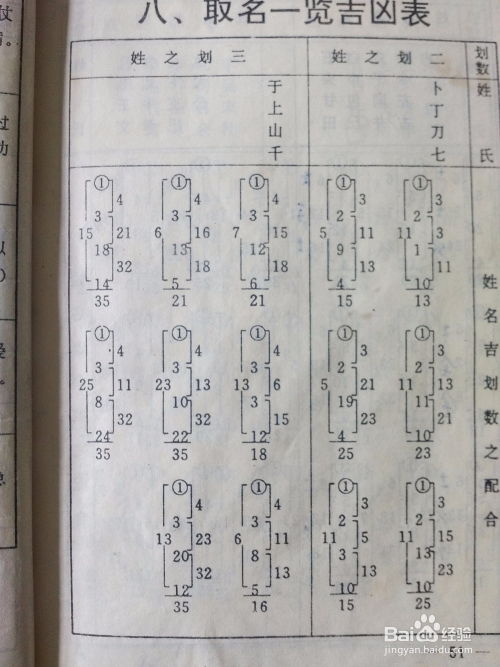 八、取名一览吉凶表
划数
二划之姓
三划之姓
姓氏
卜丁刀七
于上山千
姓名吉划数之配合
① ① ① ① ①
4 4 4 3 3
3 3 3 2 2
15 21 6 16 7 15 5 11 11 3
18 13 12 9 1
32 18 18 13 11
14 5 6 4 10
35 21 21 15 13
① ① ① ① ①
4 4 4 3 3
3 3 3 2 2
25 11 23 13 13 6 5 21 11 13
8 10 3 19 11
32 32 15 23 21
24 22 12 4 10
35 35 18 25 23
① ① ① ①
4 4 3 3
3 3 2 2
13 23 6 11 11 5 11 15
20 8 3 13
32 13 13 23
12 5 10 10
35 16 15 25
Baidu经验
jingyan.baidu.com